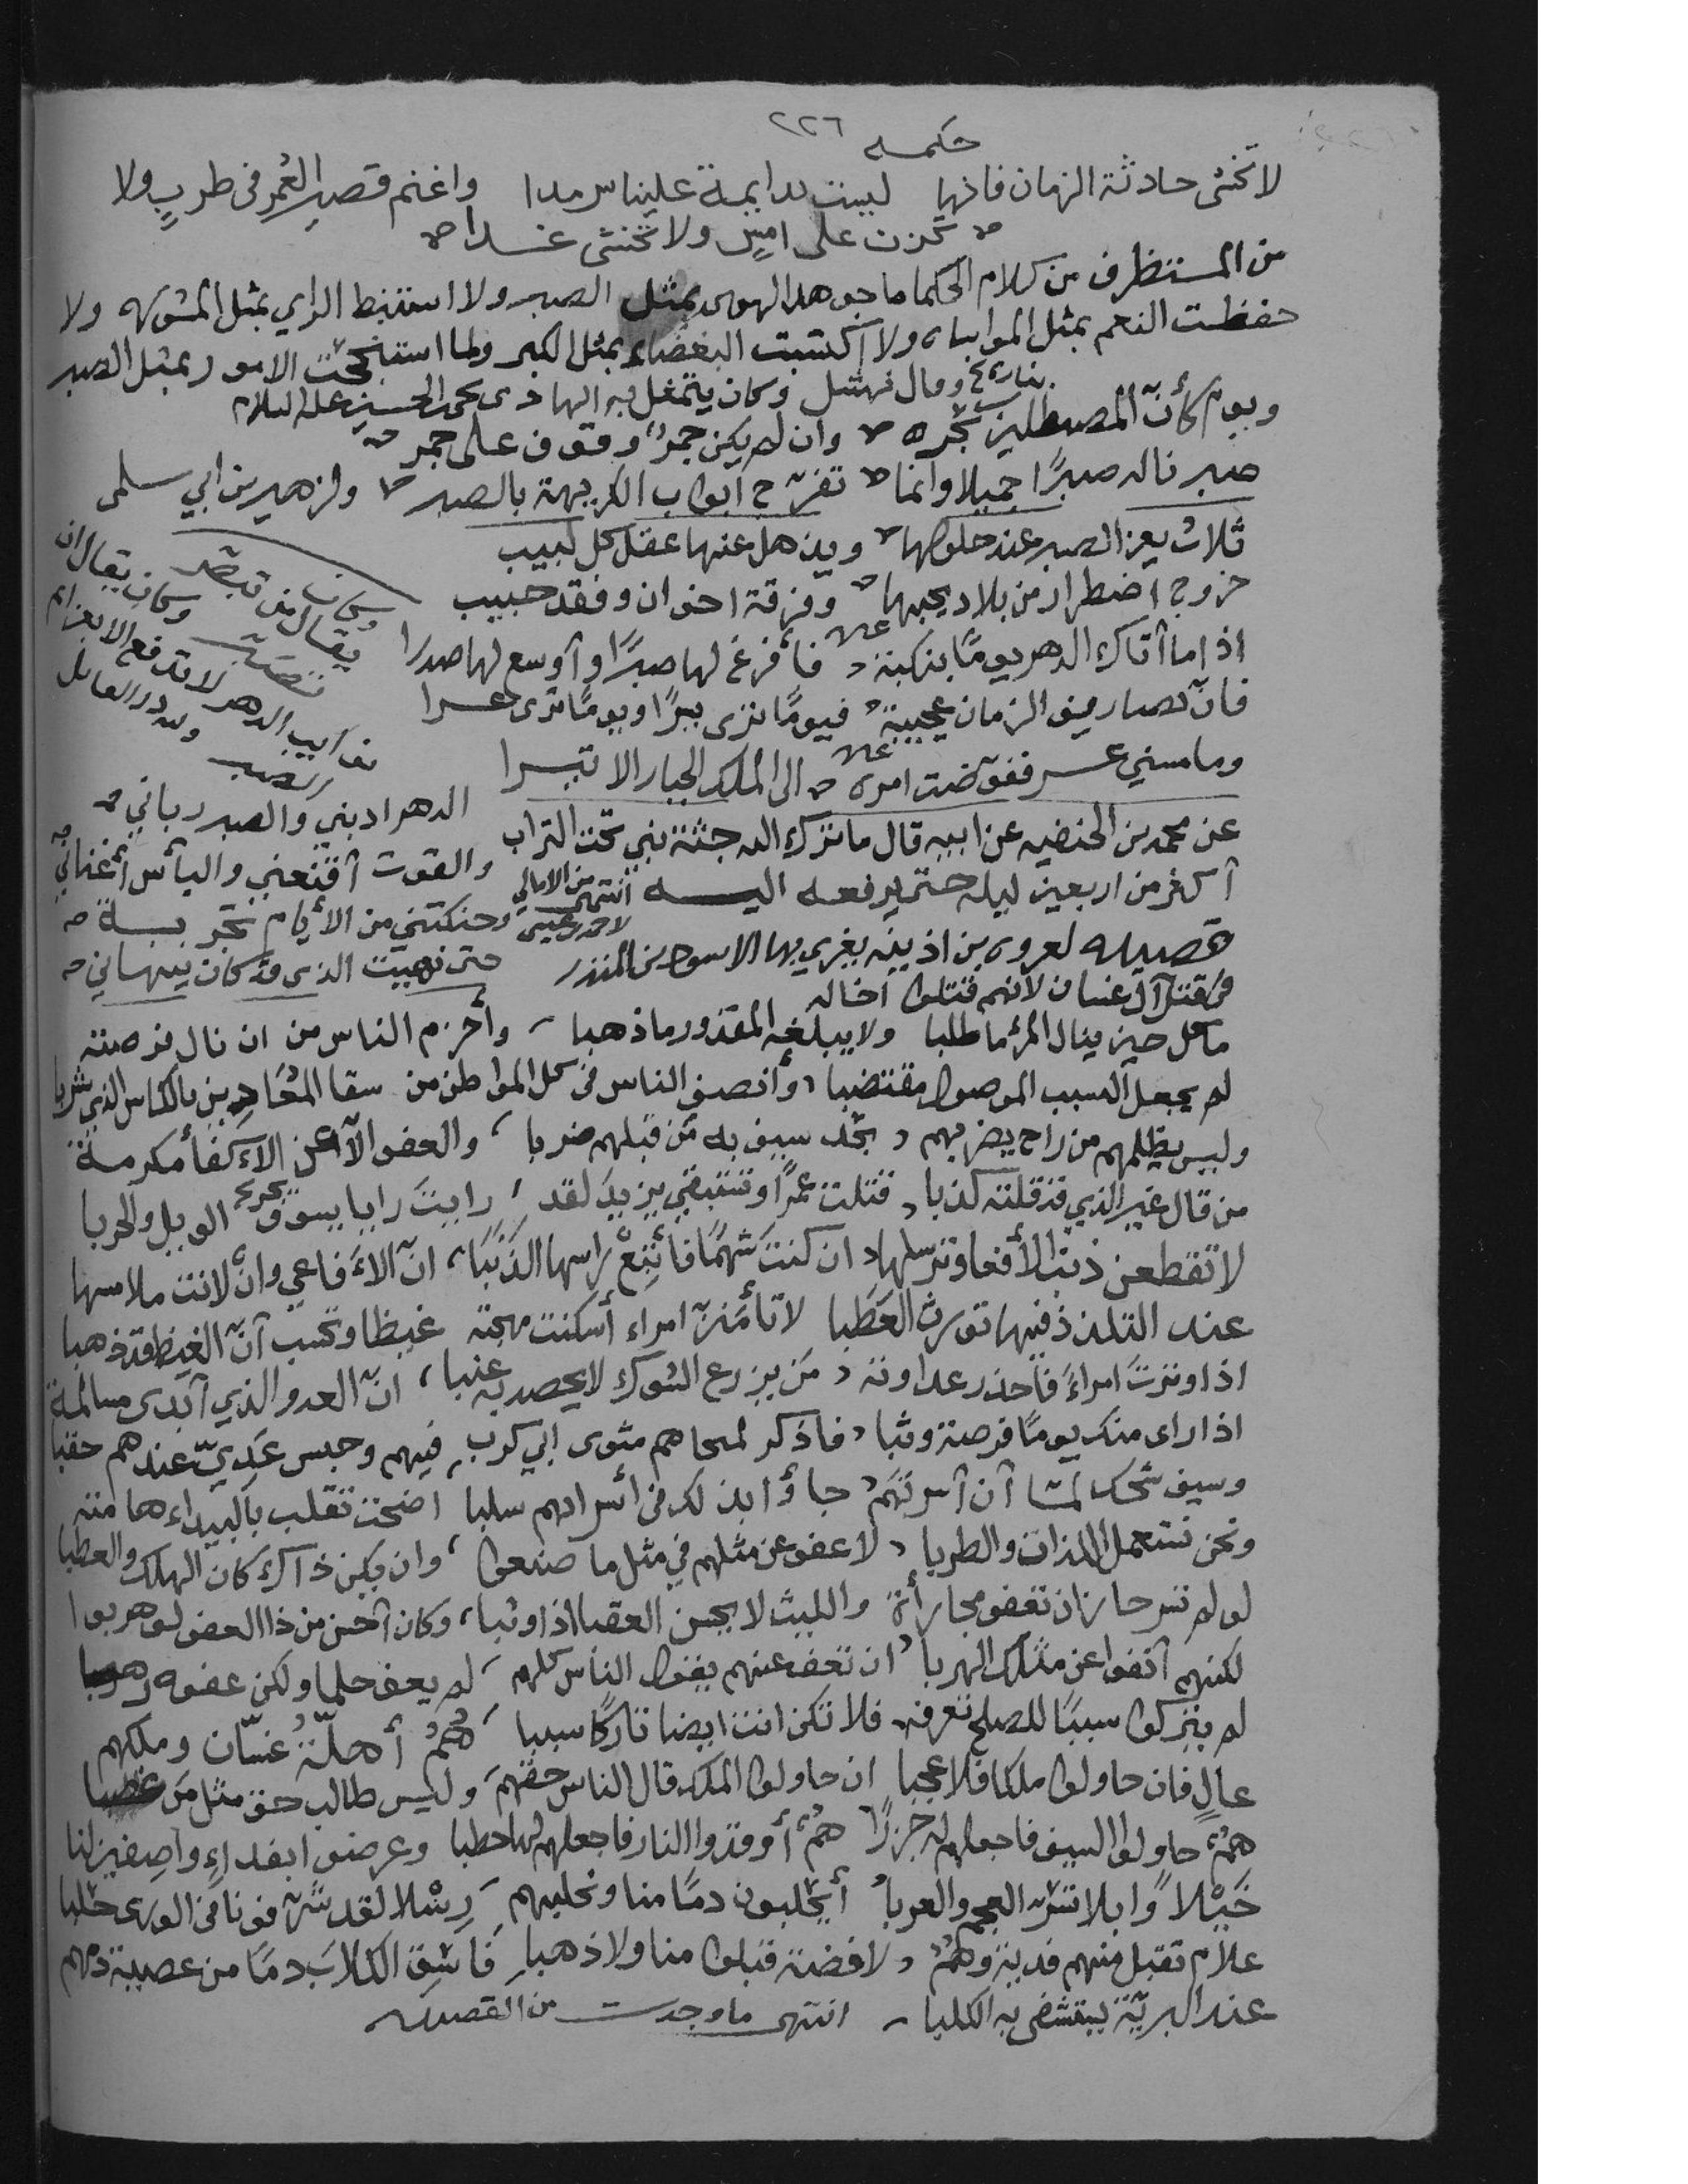 ٢٢٦
حكمه
لا تخش حادثة الزمان فانها ليست بدايمة علينا سرمدا واغنم قصير العمر في طربٍ ولا
تحزن على امسٍ ولا تخشى غدا
من المستظرف من كلام الحكما ما جوهد الهوى بمثل الصبر ولا استنبط الراي بمثل المشوره ولا
حفظت النعم بمثل المواساه ولا اكتسبت البغضاء بمثل الكبر وما استنجحت الامور بمثل الصبر
وقال نهشل وكان يتمثل به الهادي يحيى بن الحسين عليه السلام
ويوم كأنّ المصطلين بحره وان لم يكن جمرٌ وقوف على جمر
صبرنا له صبرًا جميلا وانما تفرّج ابواب الكريهة بالصبر ولزهير بن ابي سلمى
ثلاث يعز الصبر عند حلولها ويذهل عنها عقل كل لبيب
خروج اضطرار من بلاد يحبها وفرقة اخوان وفقد حبيب
اذا ما أتاك الدهر يومًا بنكبة فأفرغ لها صبرًا وأوسع لها صدرا
فانّ تصاريف الزمان عجيبة فيومًا ترى يسرًا ويومًا ترى عسرا
وما مسني عسر ففوّضت امره الى الملك الجبار الا تيسرا
وكان يقال من تبصّر تصبّر وكان يقال ان
نوايب الدهر لا تدفع الا بعزايم
الصبر ولله در القايل
الدهر ادبني والصبر رباني
والقوت أقنعني واليأس أغناني
وحنكتني من الأيام تجربة
حتى نهيت الذي قد كان ينهاني
عن محمد بن الحنفيه عن ابيه قال ما تترك الله جثة نبي تحت التراب
أكثر من اربعين ليله حتى يرفعه اليه انتهى من الامالي
لاحمد بن عيسى
قصيده لعروه بن اذينه يغري بها الاسود بن المنذر
في قتل آل غسان لانهم قتلوا اخا له
ما كل حين ينال المرء ما طلبا ولا يبلغه المقدور ما ذهبا وأحزم الناس من ان نال فرصته
لم يجعل السبب الموصول مقتضبا وأنصف الناس في كل المواطن من سقا المُعَادِين بالكاس الذي شربا
وليس يظلمهم من راح يضربهم بحَد سيف به مَن قبلهم ضربا والعفو الا عن الأكفأ مكرمة
من قال غير الذي قد قلته كذبا قتلت عمرًا وتستبقي يزيدَ لقد رايتَ رايا يسوق يجر الويل والحربا
لا تقطعن ذنب الأفعا وترسلها ان كنتَ شهمًا فأتبِعْ راسها الذَنَبَا انّ الأفاعي وانْ لانت ملامسها
عند التلمذ فيها تورث العَطَبا لا تأمَنَنّ امراء أسكنت مهجته غيظا وتحسب أنّ الغيظ قد ذهبا
اذا وترتَ امراءً فأحذر عداوته مَن يزرع الشوك لا يحصد به عنبا انّ العدو الذي أبدى مسالمة
اذا راى منك يومًا فرصة وثبا فاذكر لمحاهم مثوى ابي كرب فيهم وحبس عَدِيّ عندهم حقبا
وسيف أن أسرتَهَمُ جاؤا لك في أسرادهم سلبا اضحت تقلب بالبيداء هامته
ونحن نستعمل اللذات والطربا لا عفو عن مثلهم في مثل ما صنعوا وان يكن ذاك كان الهلك والعطبا
لو لم تسر حازان تعفو مجارأة والليث لا يحسن العقبا اذا وثبا وكان أحسن من ذا العفو لو هربوا
لكنهم أنفوا عن مثلك الهربا ان تعف عنهم يقول الناس كلهم لم يعف حلما ولكن عفوه رهبا
لم يتركوا سببًا للصلح تعرفه فلا تكن انت ايضا تاركًا سببا هُمُ أهلّة غسّان وملكهم
عالٍ فان حاولوا ملكا فلا عجبا ان حاولوا الملك قال الناس حقهم وليس طالب حق مثل من غصبا
هُمُ حاولوا السيف فاجعلهم له جزرًا هُمُ أوقدوا النار فاجعلهم لها حطبا وعرضوا بفداءٍ واصفين لنا
خَيْلاً وابلا تسرّ العجم والعربا أيحلبون دمًا منا ونحلبهم رِسْلا لقد شرّفونا في الورى حلبا
علام تقبل منهم فدية وهُمُ لا فضة قبلوا منا ولا ذهبا فاسق الكلابَ دمًا من عصبة دمهم
عند البريّة يستشفى به الكلبا انتهى ما وجدت من القصيده